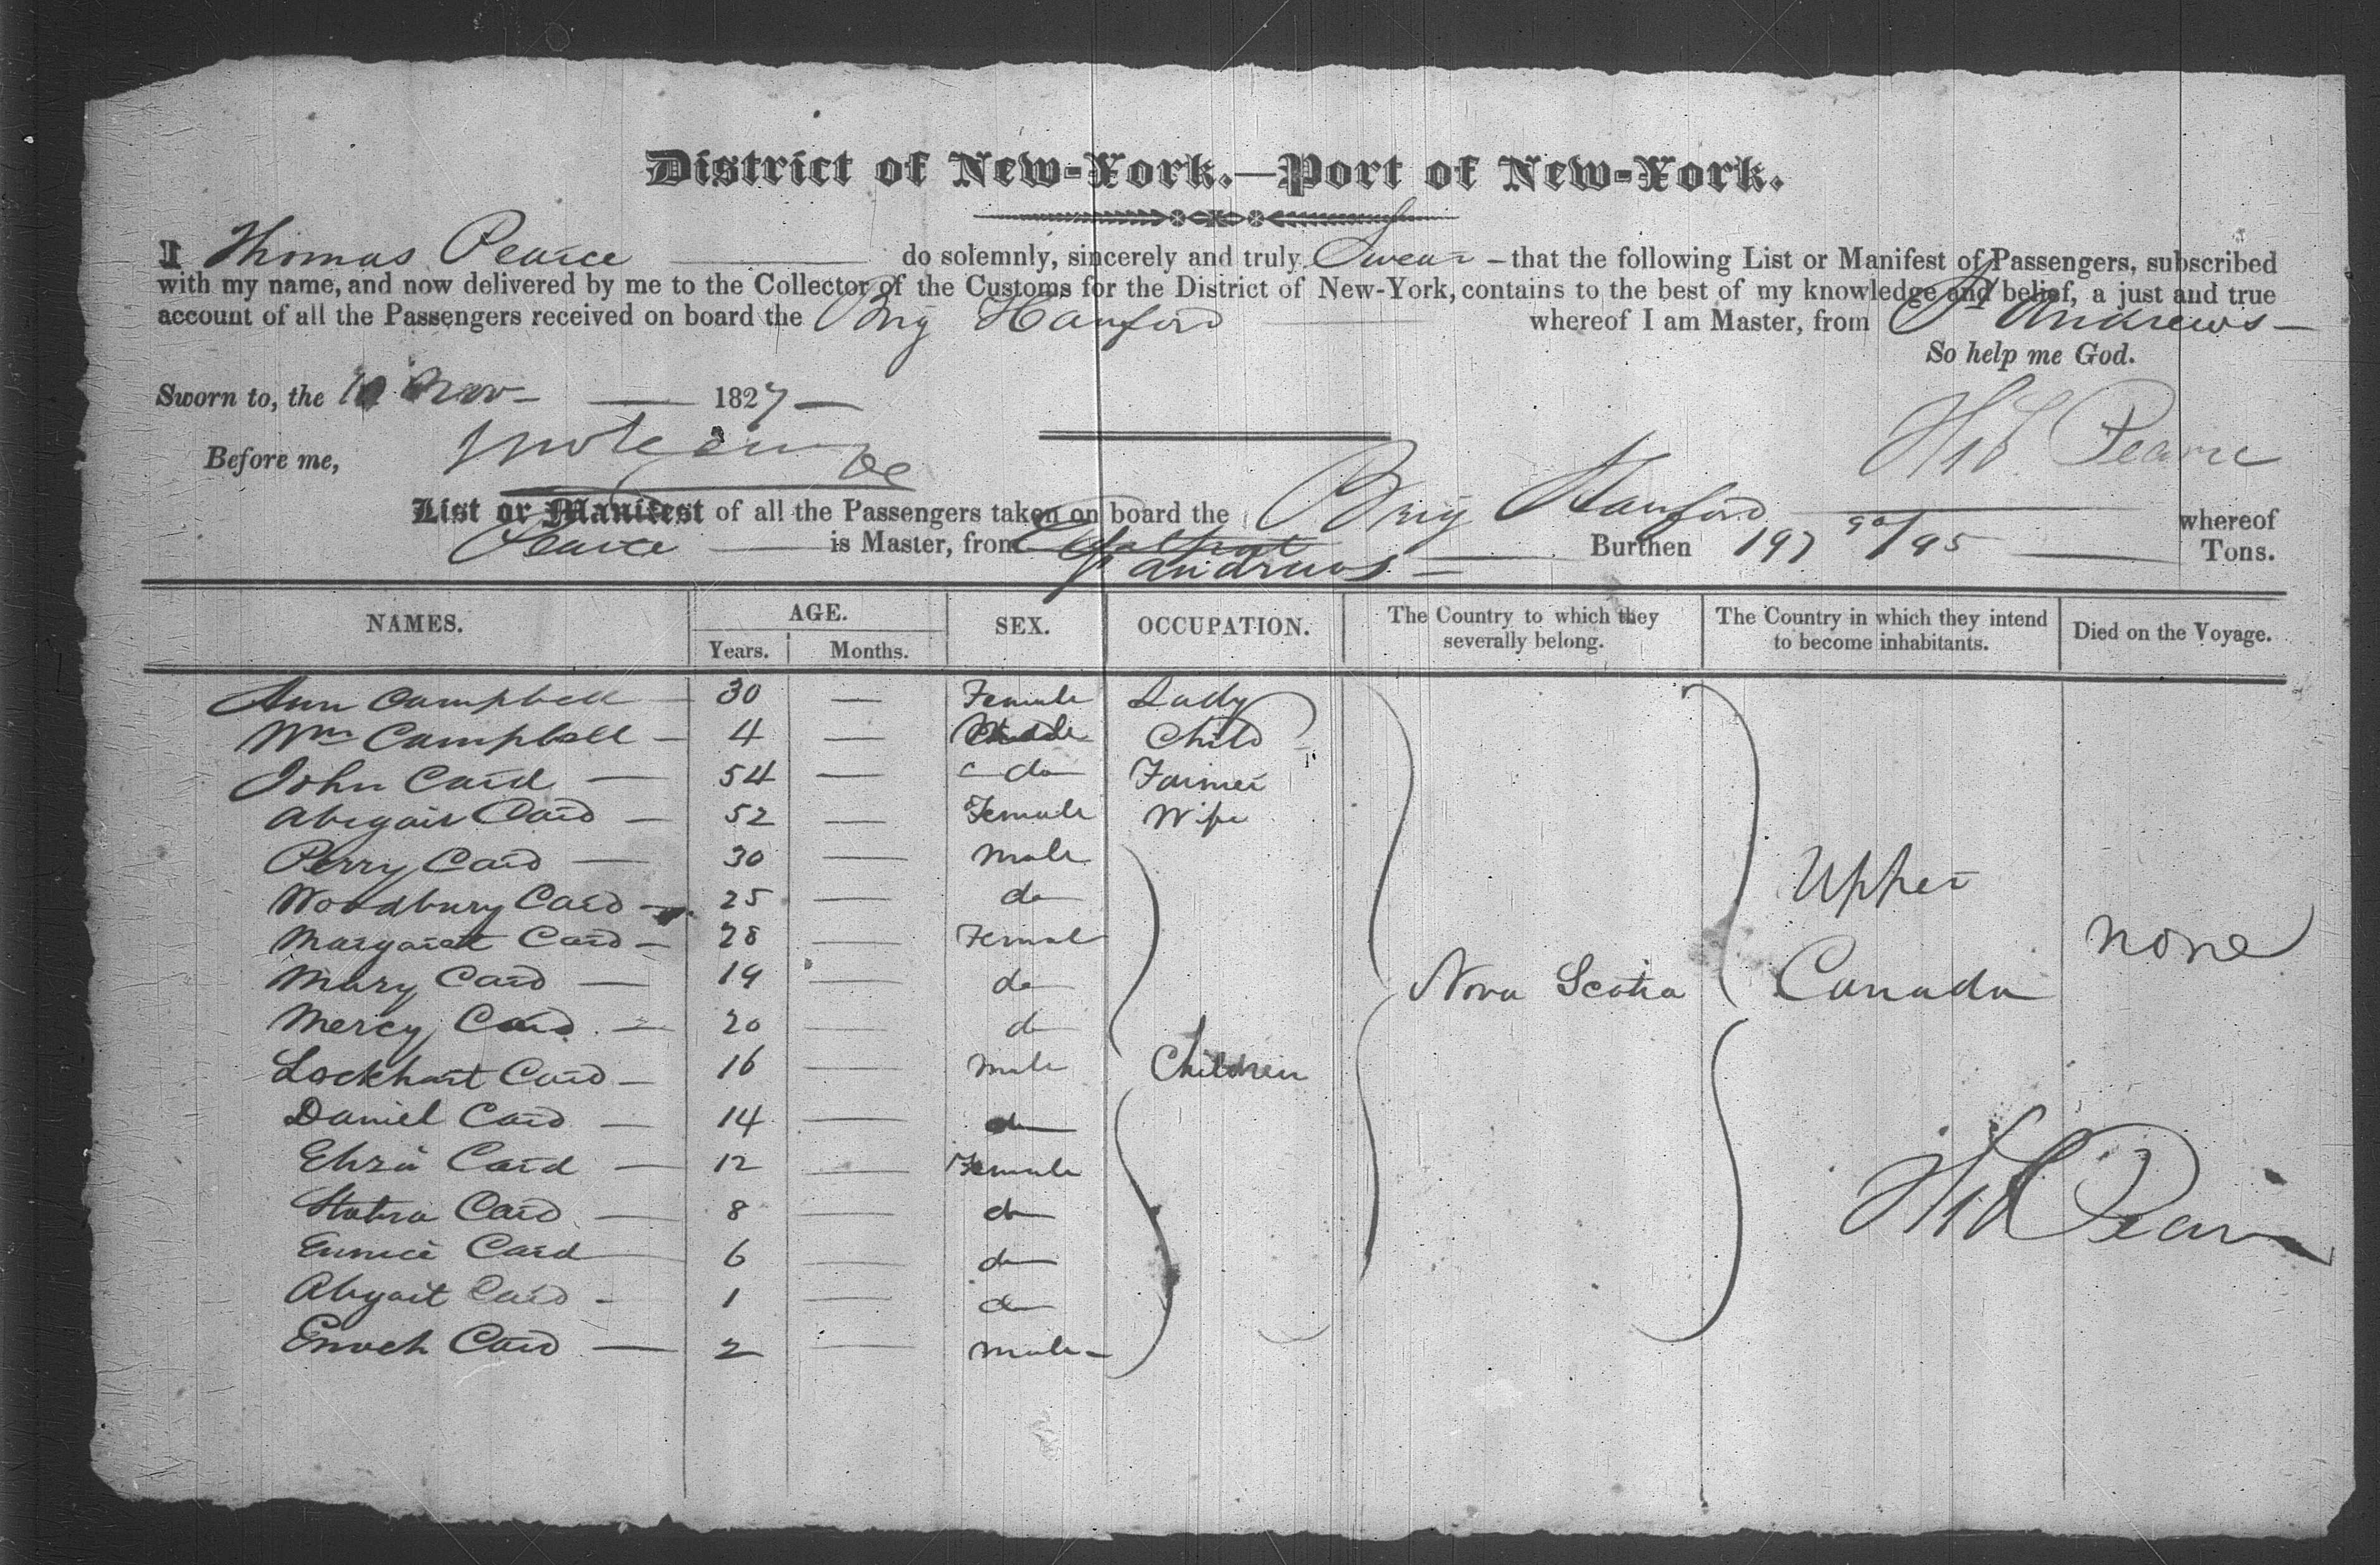 District of New-York.—Port of New-York.
I Thomas Pearce do solemnly, sincerely and truly Swear – that the following List or Manifest of Passengers, subscribed
with my name, and now delivered by me to the Collector of the Customs for the District of New-York, contains to the best of my knowledge and belief, a just and true
account of all the Passengers received on board the Brig Hanford whereof I am Master, from St Andrews –
So help me God.
Sworn to, the 10 Nov – 1827 –
Before me,
Pearce
List or Manifest of all the Passengers taken on board the Brig Hanford whereof
Pearce is Master, from St Andrews – Burthen 197 90/95 Tons.
NAMES. AGE. SEX. OCCUPATION. The Country to which they severally belong. The Country in which they intend to become inhabitants. Died on the Voyage.
Years. Months.
Ann Campbell – 30 — Female Lady
Wm Campbell – 4 — Child
John Card — 54 — do Farmer
Abigail Card — 52 — Female Wife
Perry Card — 30 — male
Woodbury Card — 25 — do
Margaret Card – 28 — Female
Mary Card — 19 — do
Mercy Card — 20 — do
Lockhart Card – 16 — male Children
Daniel Card — 14 — do
Eliza Card — 12 — Female
Card — 8 — do
Eunice Card 6 — do
Abigail Card – 1 — do
Enoch Card — 2 — male –
Nova Scotia
Upper
Canada
none
Pearce